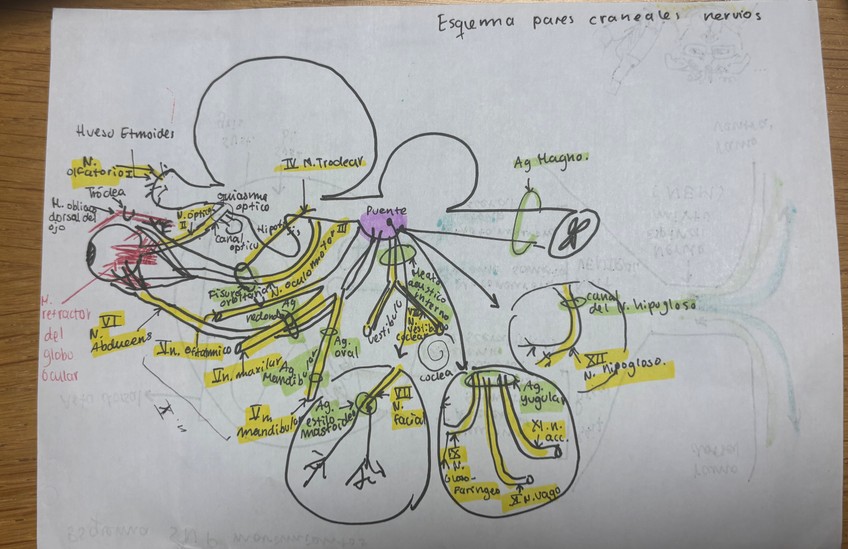 Esquema pares craneales nervios
Hueso Etmoides
N.
olfatorio I
Tróclea
M. oblicuo
dorsal del
ojo
IV N. Troclear
quiasma
optico
N. optico
II
canal
optico
Hipofisis
Puente
Ag Magno.
III
N. oculomotor
Fisura
orbitaria
Ag
redondo
M.
retractor
del
globo
ocular
VI
N.
Abducens
V n. oftalmico
V n. maxilar
Ag
Mandibular
Ag.
oval
V n.
mandibular
Meato
acustico
interno
vestibulo
VIII
N.
vestibulo
coclear
coclea
canal
del N. hipogloso
XII
N. hipogloso.
Ag.
estilo
mastoideo
VII
N.
facial
Ag.
yugular
XI. n.
acc.
IX
N.
Gloso-
faringeo
N. vago